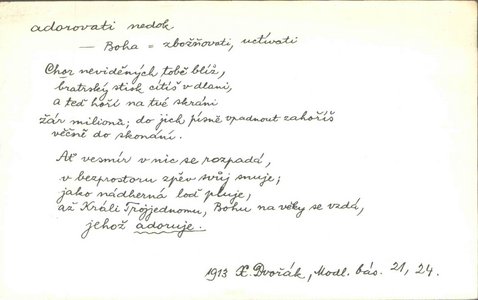 adorovati nedok.
— Boha = zbožňovati, uctívati
Chor neviděných tobě blíž,
bratrský stisk cítíš v dlani,
a teď hoří na tvé skráni
žár milionů; do jich písně vpadnout zahoříš
věčně do skonání.
Ať vesmír v nic se rozpadá,
v bezprostoru zpěv svůj snuje;
jako nádherná loď pluje,
až Králi Trojjednomu, Bohu na věky se vzdá,
jehož adoruje.
1913 X. Dvořák, Modl. bás. 21, 24.